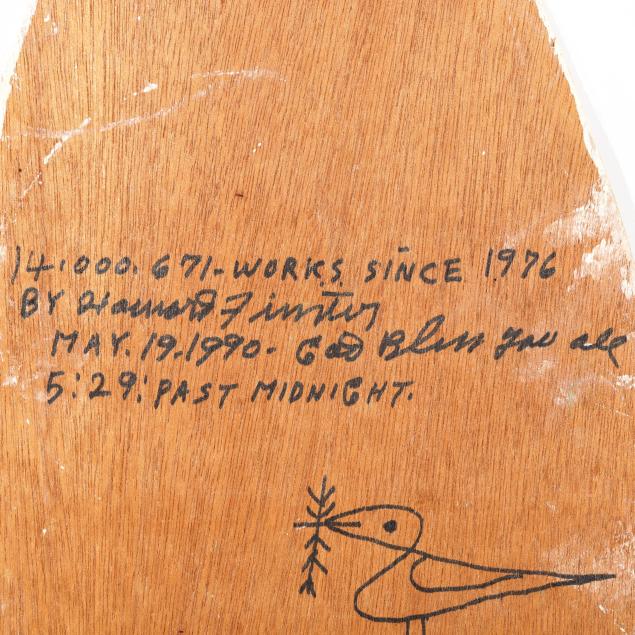 14.000.671-WORKS SINCE 1976
BY Howard Finster
MAY.19.1990- God Bless you all
5:29: PAST MIDNIGHT.